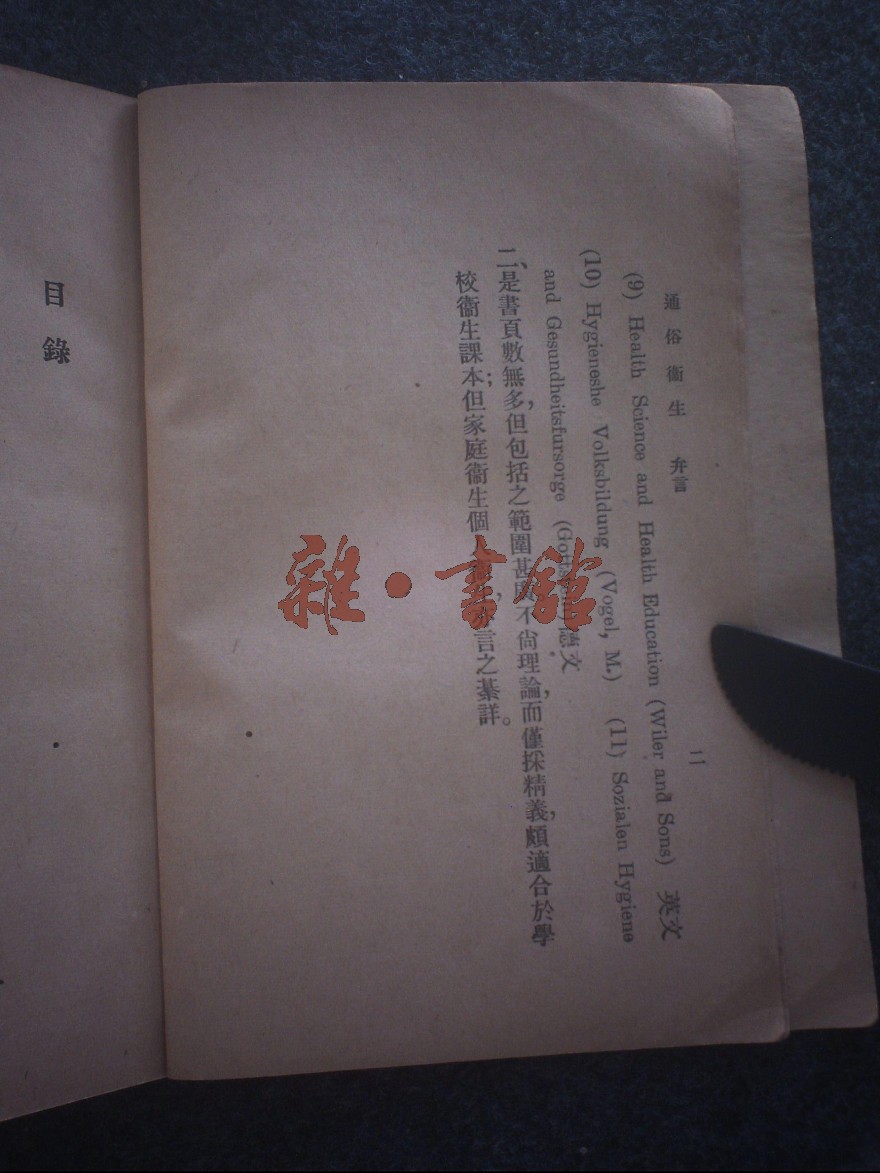 通俗衞生 弁言
二
(9) Health Science and Health Education (Wiler and Sons) 英文
(10) Hygieneshe Volksbildung (Vogel, M.) (11) Sozialen Hygiene
and Gesundheitsfursorge 德文
二、是書頁數無多，但包括之範圍甚 不尙理論，而僅採精義，頗適合於學
校衞生課本；但家庭衞生個人 言之綦詳。
目錄
雜·書舘